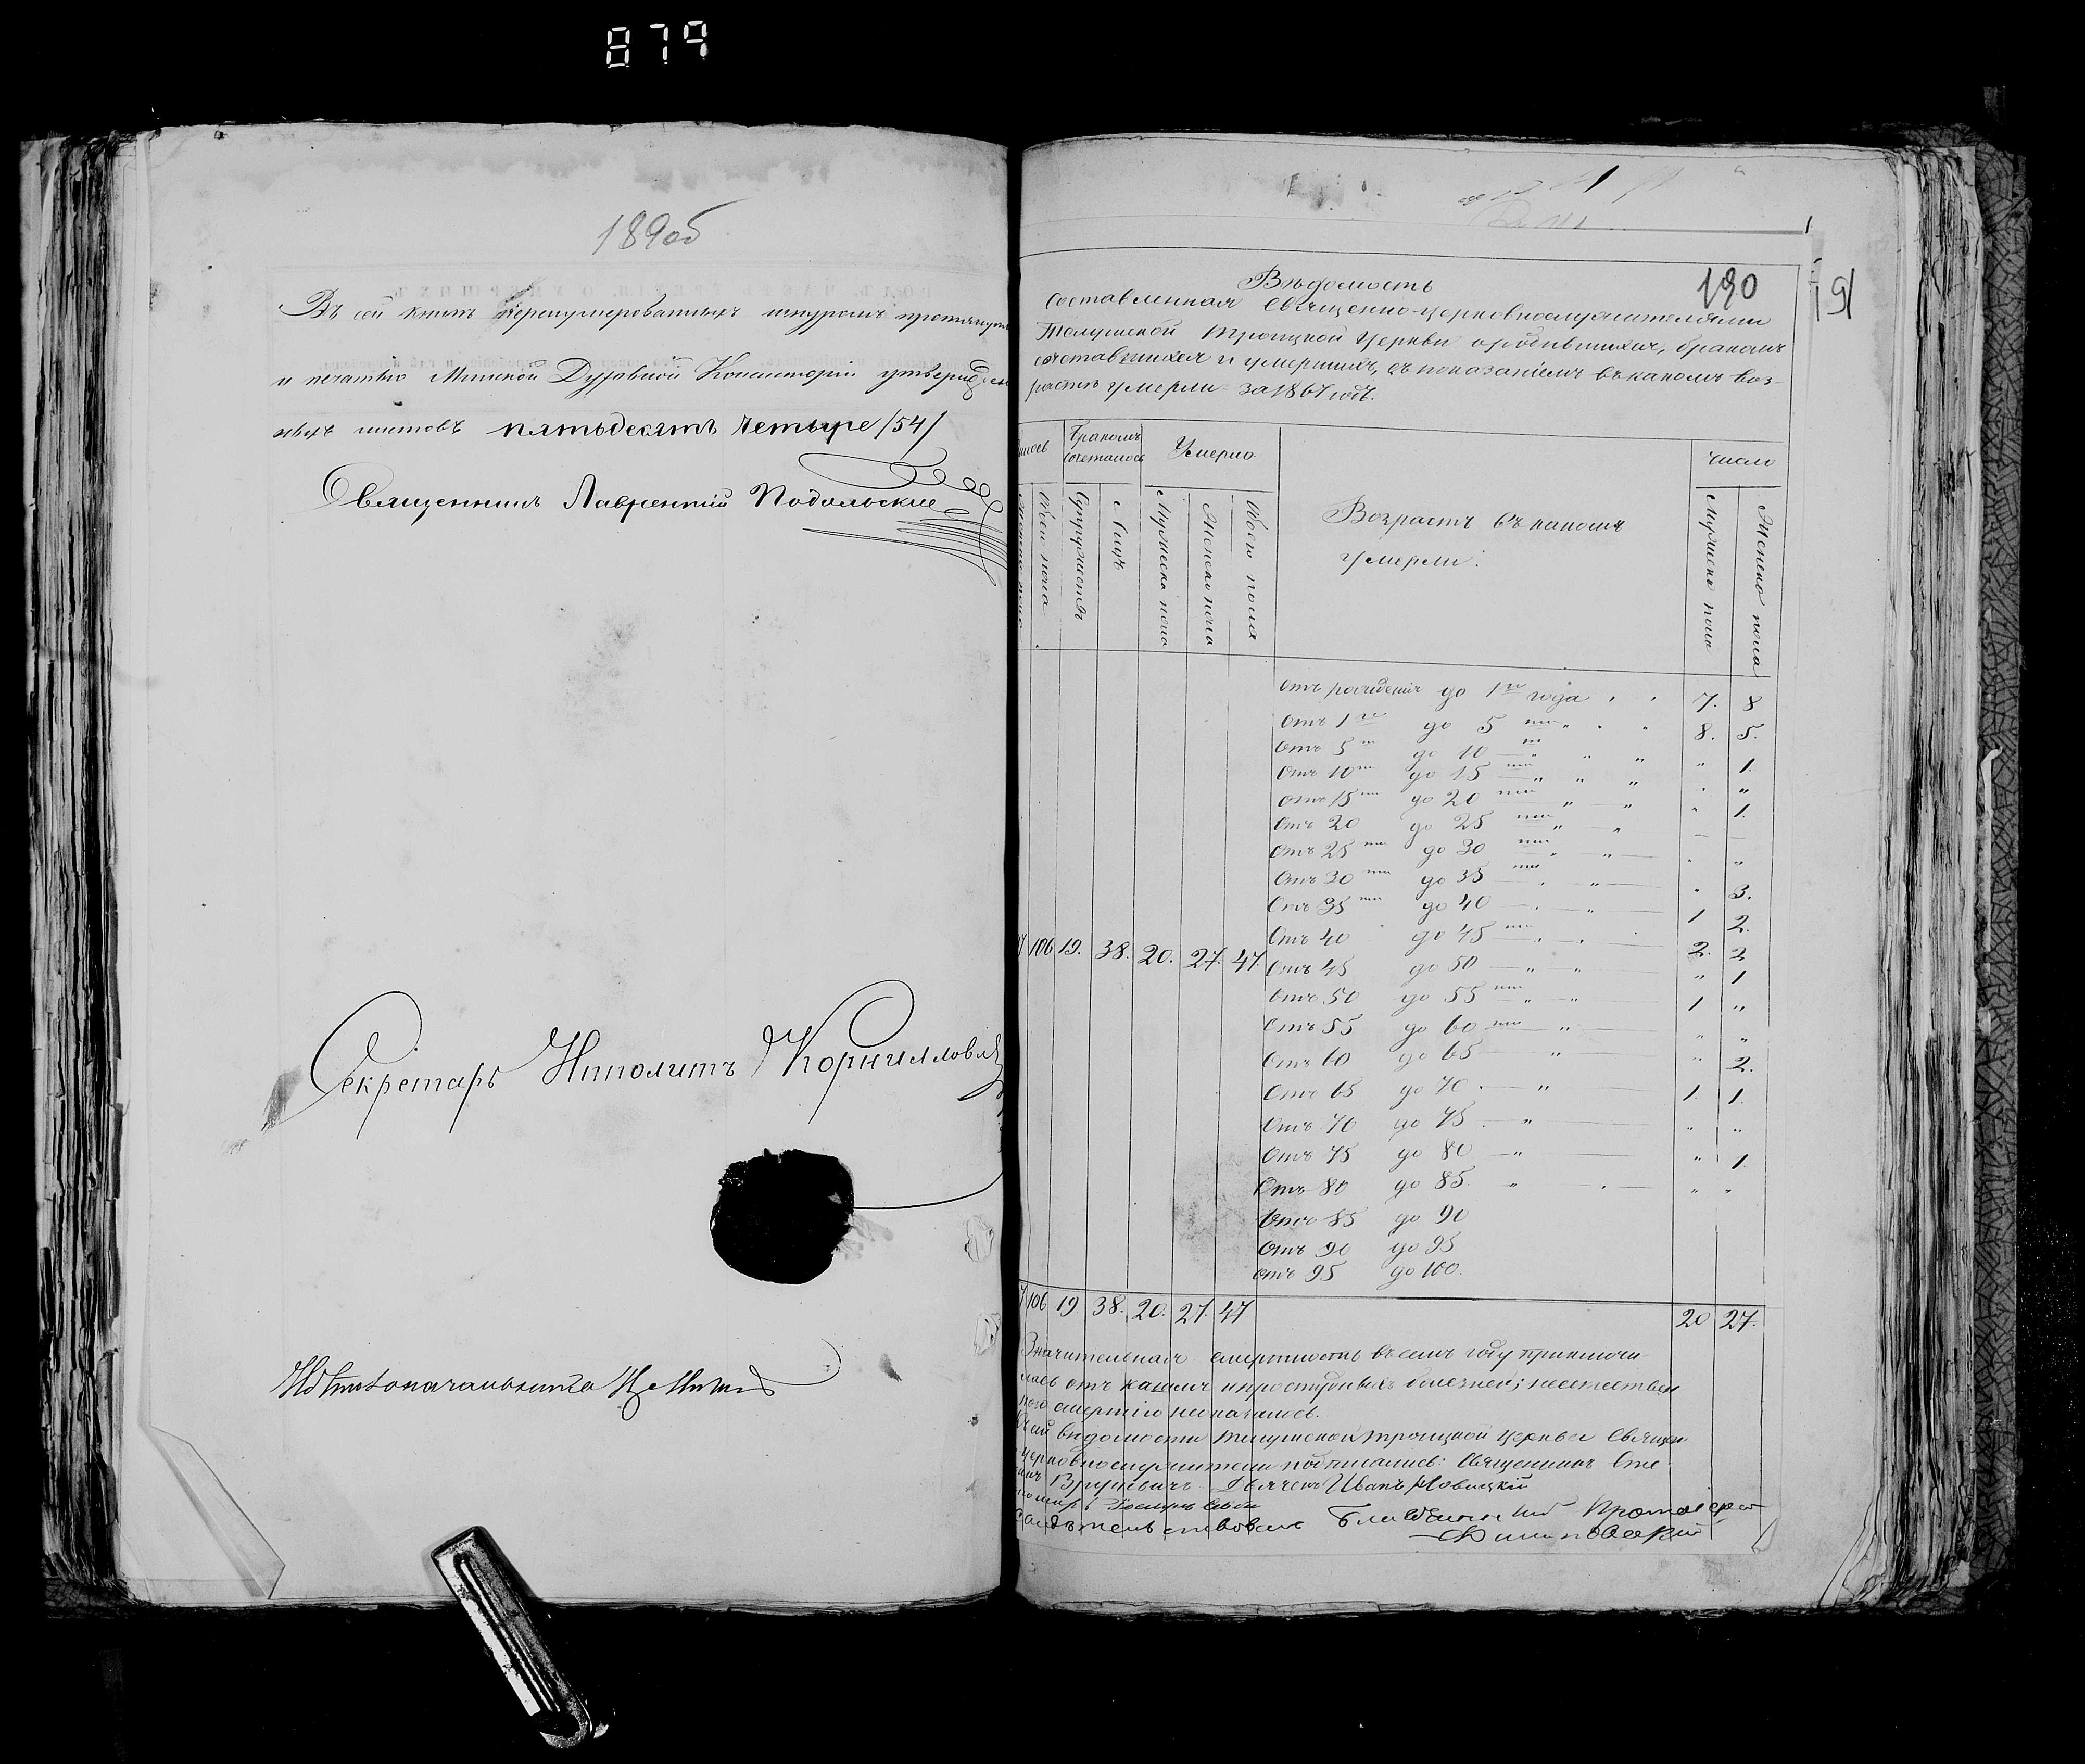 879
189об
Въ сей книгѣ перенумерованныхъ шнуромъ протянут
и печатью Минской Духовной Консисторіи утвержден
ныхъ листовъ пятьдесятъ четыре /54/
Священникъ Лаврентій Подольскій
Секретарь Иполитъ Корнилович
190
191
Вѣдомость
составленная Священно-церковнослужителями
Телушской Троицкой Церкви о родившихся, бракомъ
сочетавшихся и умершихъ, съ показаніемъ въ какомъ воз-
растѣ умерли за 1867 годъ.
Бракомъ сочеталось
Умерло
Возрастъ въ какомъ
умерли:
число
Обоего пола
Супружествъ
Лицъ
Мужеска пола
Женска пола
Обоего пола
Мужеска пола
Женска пола
Отъ рожденія до 1го года 7. 8
Отъ 1го до 5 ти 8. 5.
Отъ 5ти до 10 ти " 1.
Отъ 10ти до 15 ти " "
Отъ 15ти до 20 ти " 1.
Отъ 20 до 25 ти — —
Отъ 25ти до 30 ти " "
Отъ 30ти до 35 ти " 3.
Отъ 35ти до 40 1 2.
Отъ 40 до 45 ти 2. 2
Отъ 45 до 50 " 1
Отъ 50 до 55 ти 1 "
Отъ 55 до 60 ти " "
Отъ 60 до 65 " 2.
Отъ 65 до 70 1. 1.
Отъ 70 до 75 " "
Отъ 75 до 80 " 1.
Отъ 80 до 85. " "
Отъ 85 до 90
Отъ 90 до 95
Отъ 95 до 100.
106 19. 38. 20. 27. 47.
106 19 38. 20. 27. 47 20 27.
Значительная смертность въ семъ году приключи
лась отъ кашля и простудныхъ болезней; неестествен
ной смертію не оказалось.
Къ сей вѣдомости Телушской Троицкой Церкви Священ
церковнослужители подписались: Священникъ Сте
Дьячекъ Иванъ Новицкій
Благочинный Протоіерей